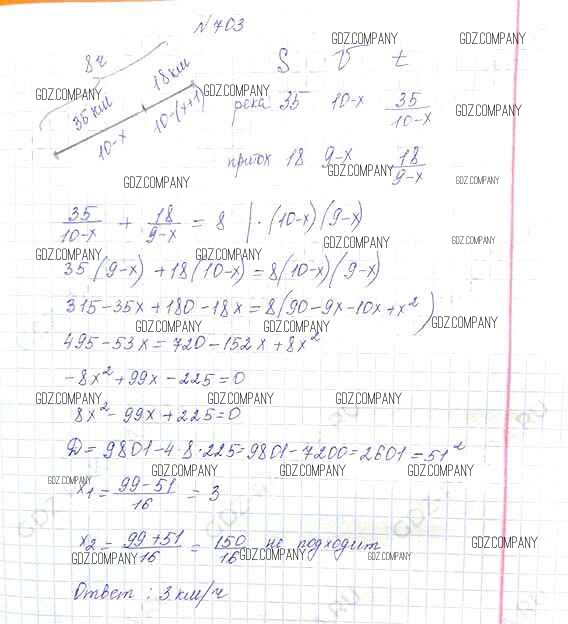 № 703
GDZ.COMPANY GDZ.COMPANY
8ч 18 км S V t
GDZ.COMPANY GDZ.COMPANY
35 км 10-(x+1) река 35 10-x 35/(10-x) GDZ.COMPANY
10-x
приток 18 9-x 18/(9-x)
GDZ.COMPANY GDZ.COMPANY GDZ.COMPANY
35/(10-x) + 18/(9-x) = 8 | · (10-x)(9-x)
GDZ.COMPANY GDZ.COMPANY GDZ.COMPANY GDZ.COMPANY
35(9-x) + 18(10-x) = 8(10-x)(9-x)
315-35x+180-18x=8(90-9x-10x+x²)
GDZ.COMPANY GDZ.COMPANY GDZ.COMPANY
495-53x=720-152x+8x²
-8x²+99x-225=0
GDZ.COMPANY GDZ.COMPANY GDZ.COMPANY
8x²-99x+225=0
D=9801-4·8·225=9801-7200=2601=51²
GDZ.COMPANY GDZ.COMPANY GDZ.COMPANY GDZ.COMPANY
x₁ = (99-51)/16 = 3
x₂ = (99+51)/16 = 150/16 не подходит
GDZ.COMPANY GDZ.COMPANY GDZ.COMPANY GDZ.COMPANY
Ответ: 3 км/ч